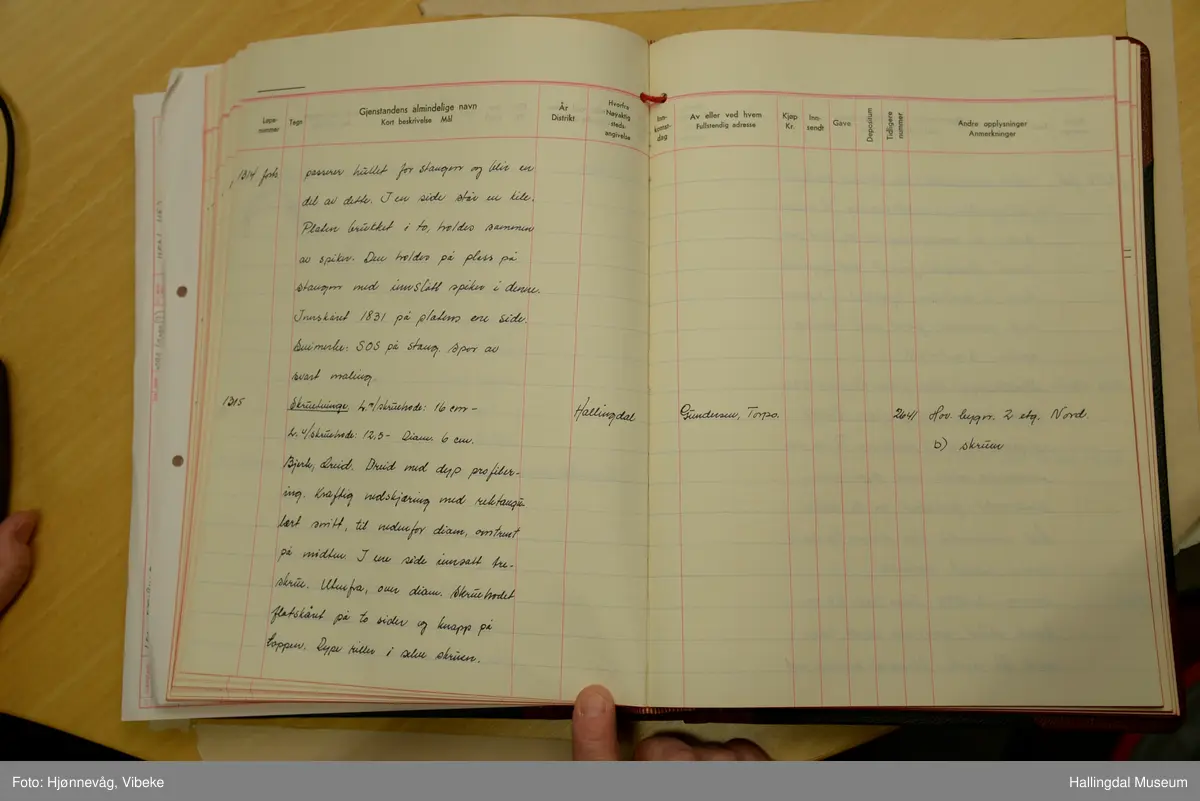 Løpe-
nummer
Tegn
Gjenstandens alminelige navn
Kort beskrivelse Mål
År
Distrikt
Hvorfra
Nøyaktig
steds-
angivelse
Inn-
komst-
dag
Av eller ved hvem
Fullstendig adresse
Kjøp
Kr.
Inn-
sendt
Gave
Depositum
Tidligere
nummer
Andre opplysninger
Anmerkninger
1314 forts
passerer hullet for stangen og blir en
del av dette. I en side står en kile.
Platen brukket i to, holdes sammen
av spiker. Den holdes på plass på
stangen med innslått spiker i denne.
Innskåret 1831 på platens ene side.
Buimerke: SOS på stang. Spor av
svart maling.
1315
Skruetvinge. L. m/skruehode: 16 cm -
L. u/skruehode: 12,5 - Diam. 6 cm.
Bjerk, dreid. Dreid med dyp profiler-
ing. Kraftig nedskjæring med rektangu-
lært snitt, til nedenfor diam, omtrent
på midten. I ene side innsatt tre-
skrue. Utenfra, over diam. Skruehodet
flatskåret på to sider og knapp på
toppen. Dype riller i selve skruen.
Hallingdal
Gundersen, Torpo.
2641
Hov. bygn. 2 etg. Nord.
b) skruen
Foto: Hjønnevåg, Vibeke
Hallingdal Museum